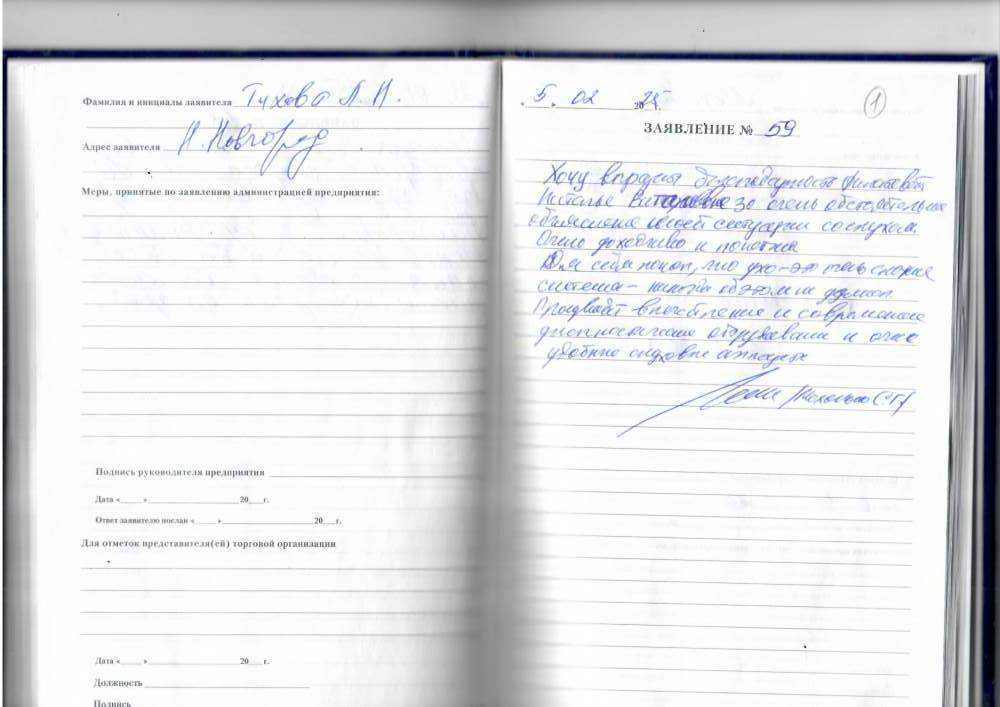 Фамилия и инициалы заявителя Тихова Л. Н.
Адрес заявителя Н. Новгород
Меры, принятые по заявлению администрацией предприятия:
Подпись руководителя предприятия
Дата «___» ___ 20___г.
Ответ заявителю послан «___» ___ 20___г.
Для отметок представителя(ей) торговой организации
Дата «___» ___ 20___г.
Должность
Подпись
„ 5 „ 02 2025 г.
1
ЗАЯВЛЕНИЕ № 59
Хочу выразить благодарность
Наталье Витальевне за очень обстоятельное
объяснение моей ситуации со слухом.
Очень доходчиво и понятно
Для себя понял, что ухо - это
система - никогда об этом не думал
Производит впечатление и современное
диагностическое оборудование и очень
удобные слуховые аппараты